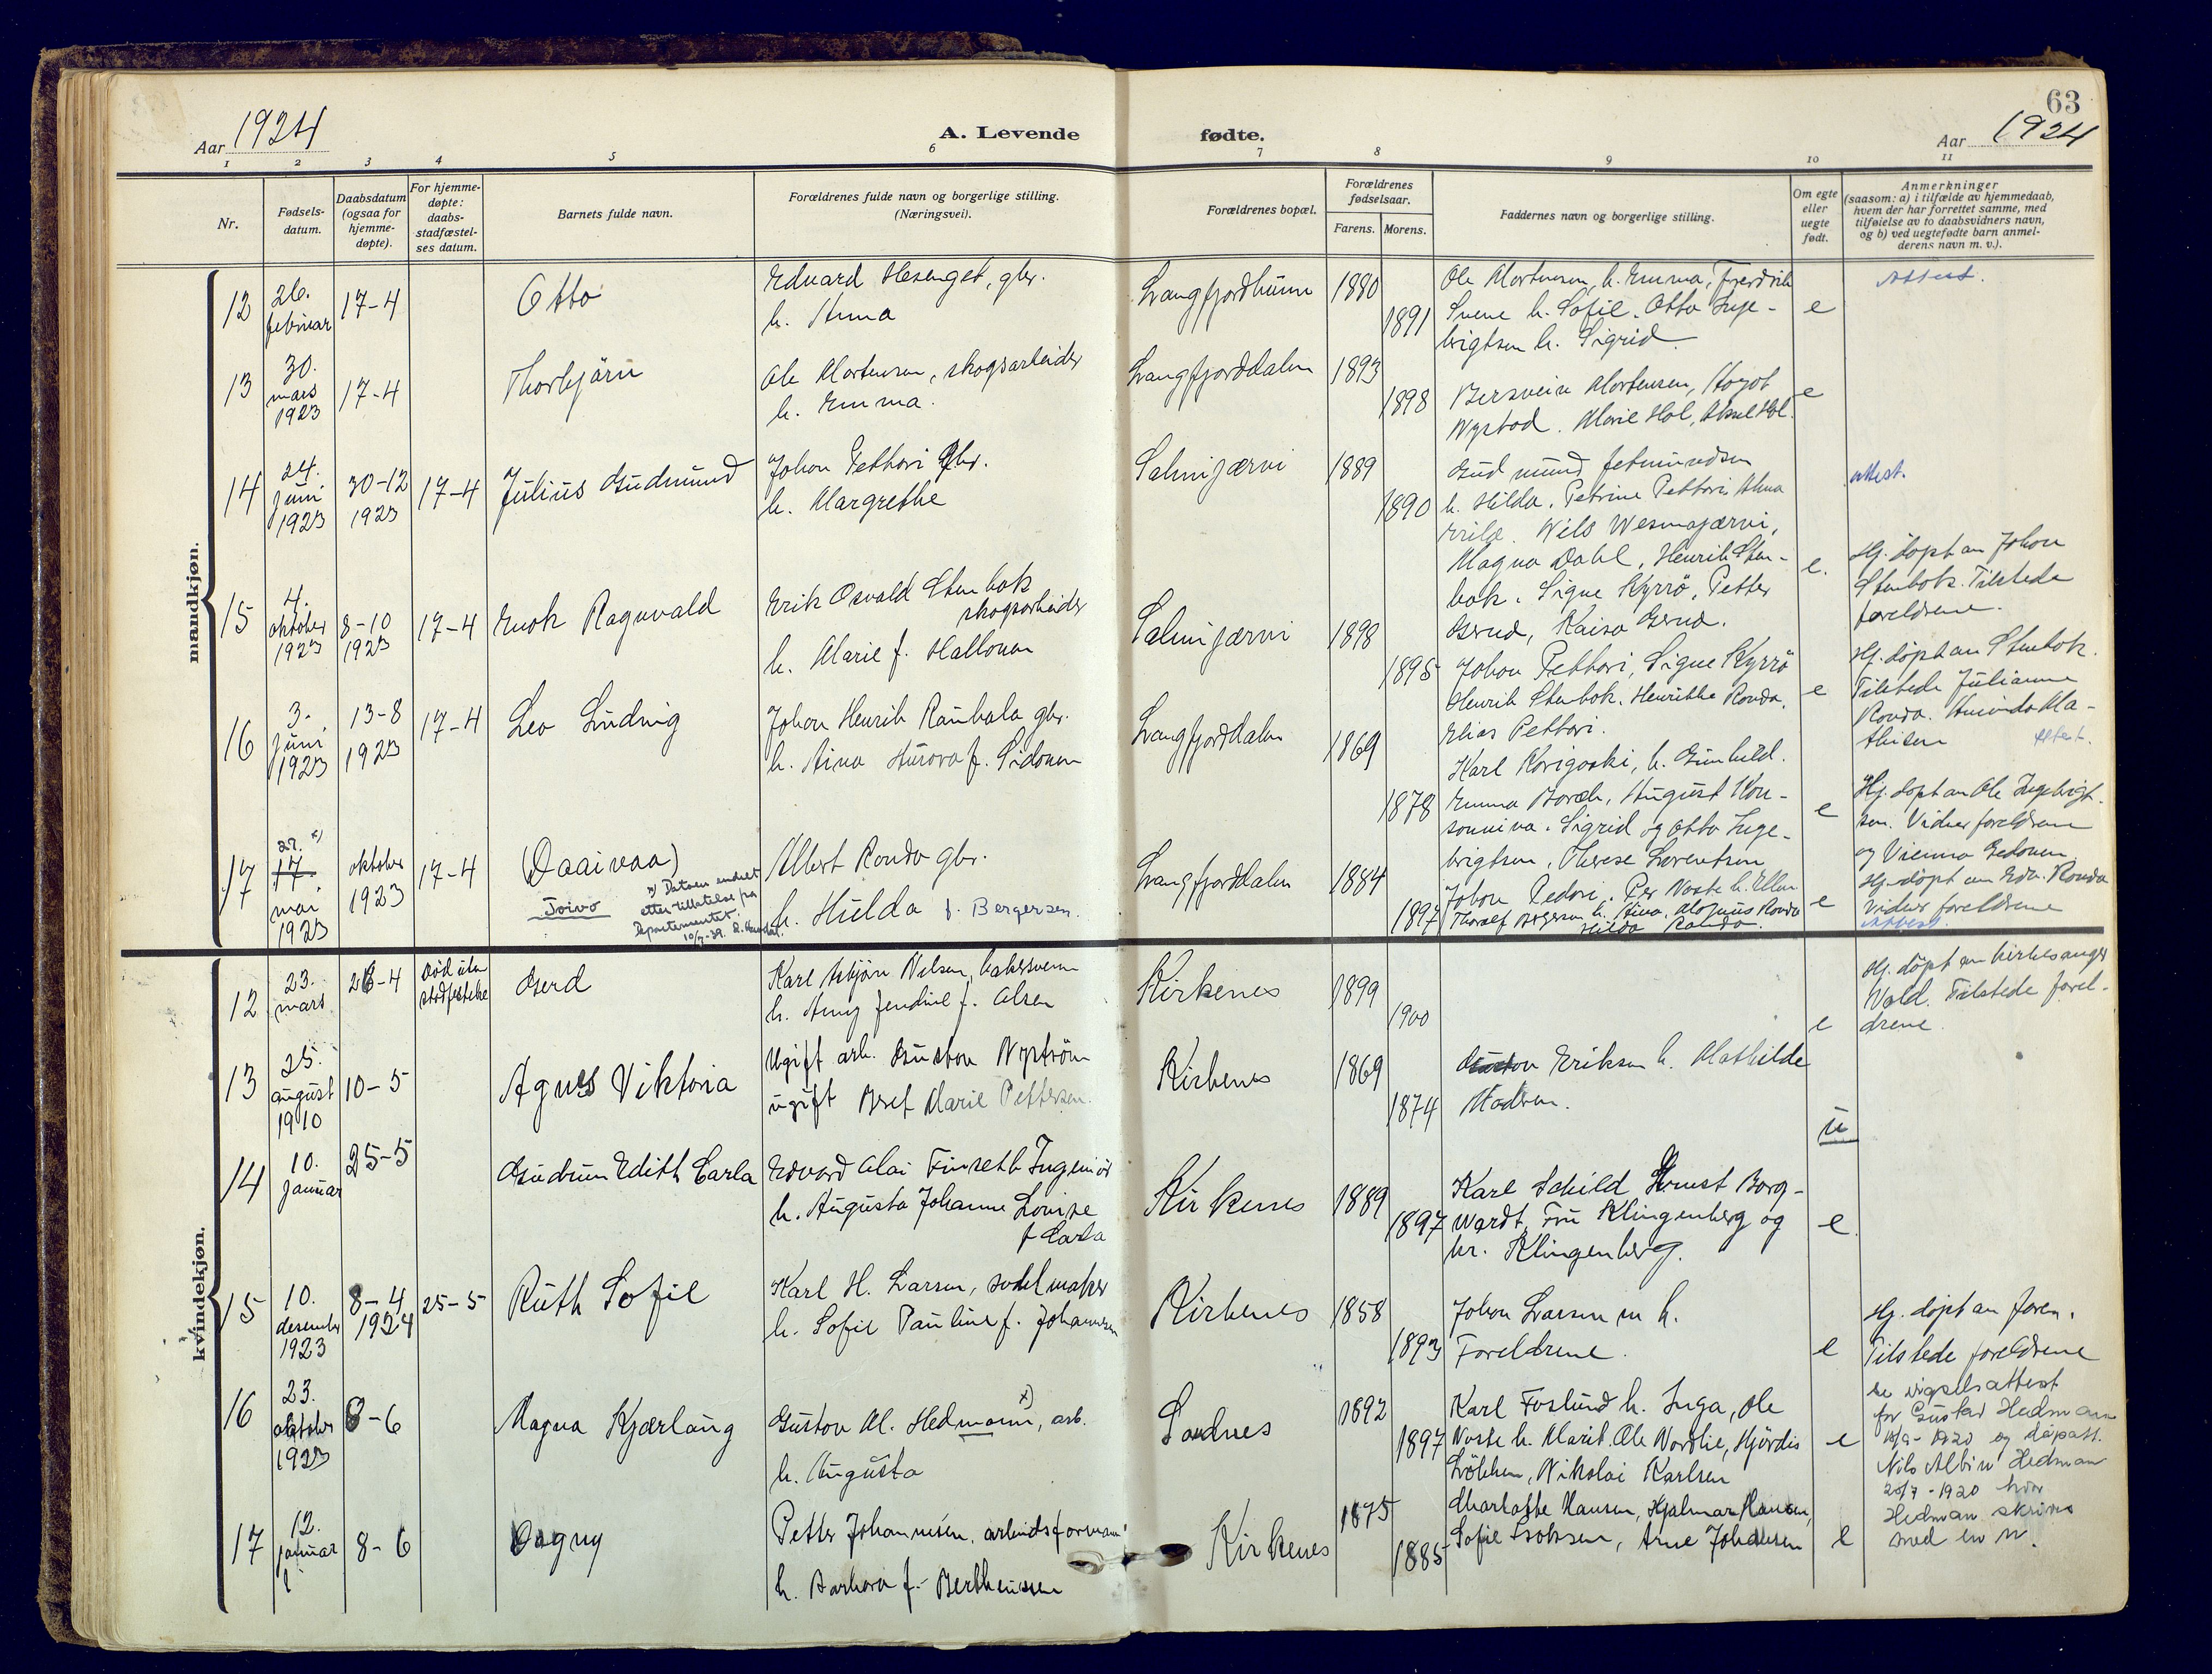 63
Aar 1924
A. Levende fødte.
Aar 1924
1 2 3 4 5 6 7 8 9 10 11
Nr.
Fødsels-
datum.
Daabsdatum
(ogsaa for
hjemme-
døpte).
For hjemme-
døpte:
daabs-
stadfæstel-
ses datum.
Barnets fulde navn.
Forældrenes fulde navn og borgerlige stilling.
(Næringsvei).
Forældrenes bopæl.
Forældrenes
fødselsaar.
Farens. Morens.
Faddernes navn og borgerlige stilling.
Om egte
eller
uegte
født.
Anmerkninger
(saasom: a) i tilfælde av hjemmedaab,
hvem der har forrettet samme, med
tilføielse av to daabsvidners navn,
og b) ved uegtefødte barn anmel-
derens navn m. v.).
mandkjøn.
12
26.
februar
17-4
Otto
Edvard Hesenget, gbr.
h. Anna
Langfjordbunn
1880
1891
Ole Mortensen, h. Emma, Fredrik
Svene h. Sofie. Otto Inge-
brigtsen h. Sigrid.
e
Attest.
13
30.
mars
1923
17-4
Thorbjörn
Ole Mortensen, skogsarbeider
h. Emma.
Langfjorddalen
1893
1898
Bersvein Mortensen,
Nystad. Marie Hol, Aksel Hol.
e
14
24.
juni
1923
30-12
1923
17-4
Julius Gudmund
Johan Pettari Gbr.
h. Margrethe
Salmijærvi
1889
1890
Gudmund
h. Hilda, Petrine Pettari,
Nils Wesmajærvi,
Magna Dahl, Henrik Sten-
bok. Signe Kyrrö, Petter
Gerud, Kaisa Gerud.
e.
attest.
Hj. döpt av Johan
Stenbok. Tilstede
foreldrene.
15
4.
oktober
1923
8-10
1923
17-4
Enok Ragnvald
Erik Osvald Stenbok
skogsarbeider
h. Marie f. Hallonen
Salmijærvi
1898
1895
Johan Pettari, Signe Kyrrö
Henrik Stenbok, Henrikke Randa,
Elias Pettari.
e
Hj. döpt av Stenbok.
Tilstede Julianne
Randa. Ma-
thisen
Attest.
16
3.
juni
1923
13-8
1923
17-4
Leo Ludvig
Johan Henrik Rauhala gbr.
h. Aina Aurora f. Sidonen
Langfjorddalen
1869
1878
Karl Korigoski, h. Gunhild.
Emma Boræk, August Kon-
Sigrid og Otto Inge-
brigtsen, Therese Lorentsen
e
Hj. döpt av Ole Ingebrigt-
sen. Vidner foreldrene
og Vienna
17
27. x)
17.
mai
1923
oktober
1923
17-4
(Daaivaa)
Toivo
x) Datoen endret
etter tillatelse fra
Departementet.
10/7-39.
Albert Randa gbr.
h. Hulda f. Bergersen.
Langfjorddalen
1884
1897
Johan Pedari, Per Naste h. Ellen
Thoralf Bergersen h. Aina, Magnus Randa
Hilda Randa.
e
Hj. döpt av Edv. Randa
Vidner foreldrene
Attest.
kvindekjøn.
12
23.
mars
26-4
Död uten
stadfestelse
Gerd
Karl Asbjörn Nilsen, bakersvenn
h. Amy Jendine f. Olsen
Kirkenes
1899
1900
e
Hj. döpt av kirkesanger
Vold. Tilstede forel-
drene.
13
25.
august
1910
10-5
Agnes Viktoria
Ugift arb. Gustav Nyström
ugift Bret Marie Pettersen.
Kirkenes
1869
1874
Gustav Eriksen h. Mathilde
Moderen.
u
14
10.
januar
25-5
Gudrun Edith Carla
Edvard Olai Finseth Ingeniör
h. Augusta Johanne Lovise
f Carla
Kirkenes
1889
1897
Karl Schild Ernst Borg-
wardt, Fru Klingenberg og
hr. Klingenberg.
e
15
10.
desember
1923
8-4
1924
25-5
Ruth Sofie
Karl H. Larsen, sadelmaker
h. Sofie Pauline f. Johannesen
Kirkenes
1858
1893
Johan Larsen m h.
Foreldrene.
e
Hj. döpt av faren.
Tilstede foreldrene
16
23.
oktober
1923
8-6
Magna Kjærlaug
Gustav Al. Hedmann x), arb.
h. Augusta
Sandnes
1892
1897
Karl Foslund h. Inga, Ole
Naste h. Marit. Ole Nordlie, Hjördis
Lökken, Nikolai Karlsen
e
se vigselsattest
for Gustav Hedman
1920 og dåpsatt.
Nils Albin Hedman
25/7-1920 hvor
Hedman skrives
med en n.
17
12.
januar
8-6
Dagny
Petter Johannesen, arbeidsformann
h. Barbara f. Bertheussen
Kirkenes
1875
1885
Charlotte Hansen, Hjalmar Hansen,
Sofie Isaksen, Arne Johansen
e